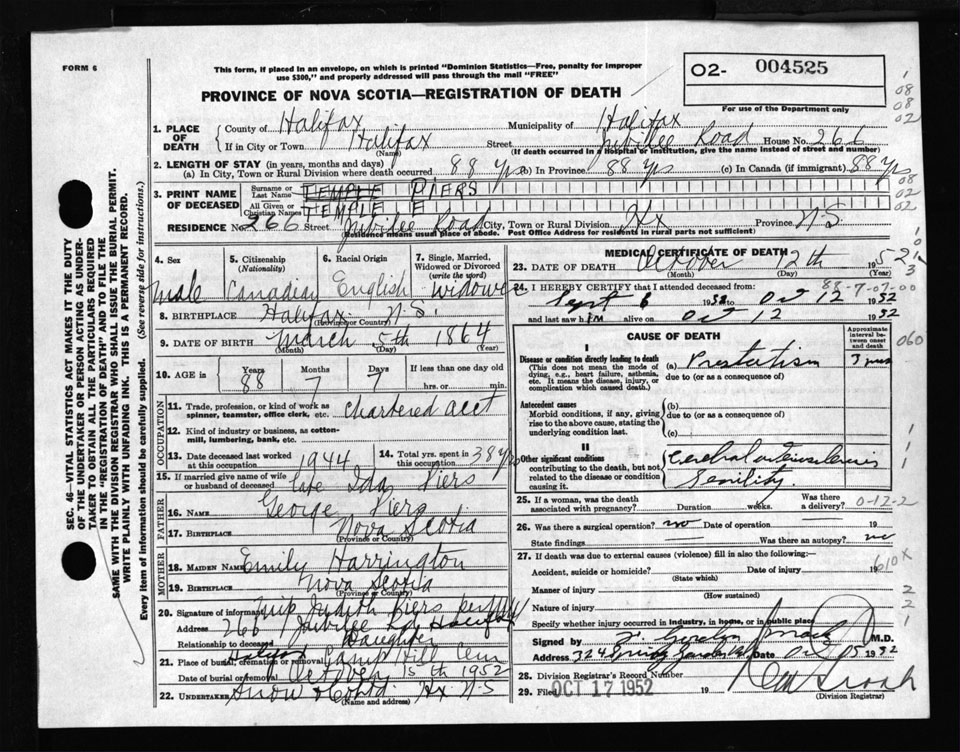 FORM 6
This form, if placed in an envelope, on which is printed "Dominion Statistics—Free, penalty for improper
use $300," and properly addressed will pass through the mail "FREE"
O2- 004525
PROVINCE OF NOVA SCOTIA—REGISTRATION OF DEATH
For use of the Department only
08
08
02
1. PLACE OF DEATH { County of Halifax Municipality of Halifax
If in City or Town Halifax Street Jubilee Road House No. 266
(Name) (If death occurred in a Hospital or Institution, give the name instead of street and number)
2. LENGTH OF STAY (in years, months and days)
(a) In City, Town or Rural Division where death occurred 88 yrs (b) In Province 88 yrs (c) In Canada (if immigrant) 88 yrs
3. PRINT NAME OF DECEASED { Surname or Last Name TEMPLE PIERS
All Given or Christian Names TEMPLE F
08
02
02
RESIDENCE No. 266 Street Jubilee Road City, Town or Rural Division Hx Province N.S.
Residence means usual place of abode. Post Office Address for residents in rural parts not sufficient)
4. Sex male
5. Citizenship (Nationality) Canadian
6. Racial Origin English
7. Single, Married, Widowed or Divorced (write the word) Widower
8. BIRTHPLACE Halifax N.S.
(Province or Country)
9. DATE OF BIRTH March 5th 1864
(Month) (Day) (Year)
10. AGE in { Years 88 Months 7 Days 7 If less than one day old
hrs. or min.
OCCUPATION
11. Trade, profession, or kind of work as spinner, teamster, office clerk, etc. Chartered acct
12. Kind of industry or business, as cotton-mill, lumbering, bank, etc.
13. Date deceased last worked at this occupation 1944
14. Total yrs. spent in this occupation 38 yrs
15. If married give name of wife or husband of deceased late Ida Piers
FATHER
16. NAME George Piers
17. BIRTHPLACE Nova Scotia
(Province or Country)
MOTHER
18. MAIDEN NAME Emily Harrington
19. BIRTHPLACE Nova Scotia
(Province or Country)
20. Signature of informant Judith Piers
Address 266 Jubilee Rd Halifax
Relationship to deceased Daughter
21. Place of burial, cremation or removal Halifax Camp Hill Cem
Date of burial or removal October 15th 1952
22. Undertaker Snow & Co Ltd. Hx N.S
(Name and address)
MEDICAL CERTIFICATE OF DEATH
23. DATE OF DEATH October 12th 1952
(Month) (Day) (Year)
24. I HEREBY CERTIFY that I attended deceased from: 88-7-07-00
Sept 6 1952 to Oct 12 1952
and last saw him alive on Oct 12 1952
CAUSE OF DEATH
Approximate interval between onset and death
I
Disease or condition directly leading to death
(This does not mean the mode of dying, e.g., heart failure, asthenia, etc. It means the disease, injury, or complication which caused death.)
(a) Prostatism 3 mos
due to (or as a consequence of)
060
Antecedent causes
Morbid conditions, if any, giving rise to the above cause, stating the underlying condition last.
(b)
due to (or as a consequence of)
(c)
II
Other significant conditions
contributing to the death, but not related to the disease or condition causing it.
Cerebral arteriosclerosis
Senility.
25. If a woman, was the death associated with pregnancy? Duration weeks. Was there a delivery?
0-12-2
26. Was there a surgical operation? no Date of operation 19
State findings Was there an autopsy? no
27. If death was due to external causes (violence) fill in also the following:—
Accident, suicide or homicide? Date of injury 19
(State which)
610X
Manner of injury
(How sustained)
Nature of injury
Specify whether injury occurred in industry, in home, or in public place
Signed by M.D.
Address 324 Date Oct 15 1952
28. Division Registrar's Record Number
29. Filed OCT 17 1952 19
(Division Registrar)
SEC. 46—VITAL STATISTICS ACT MAKES IT THE DUTY
OF THE UNDERTAKER OR PERSON ACTING AS UNDER-
TAKER TO OBTAIN ALL THE PARTICULARS REQUIRED
IN THE "REGISTRATION OF DEATH" AND TO FILE THE
SAME WITH THE DIVISION REGISTRAR WHO SHALL ISSUE THE BURIAL PERMIT.
WRITE PLAINLY WITH UNFADING INK. THIS IS A PERMANENT RECORD.
Every item of information should be carefully supplied. (See reverse side for instructions.)